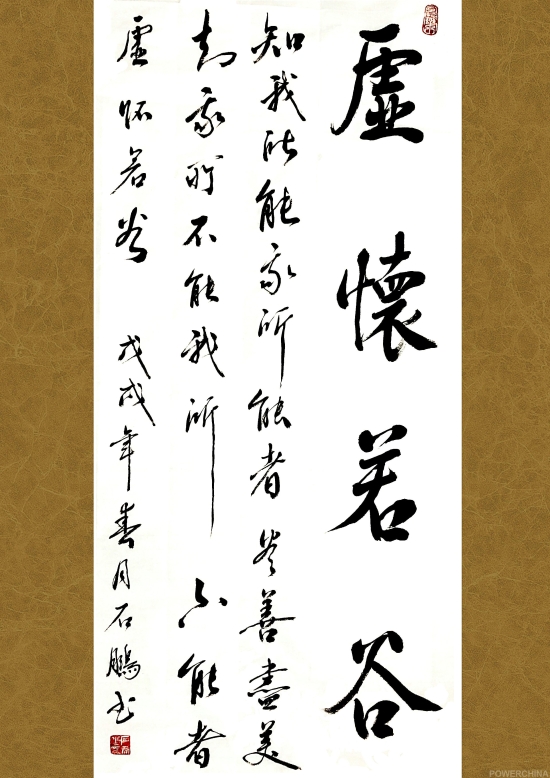 虛懷若谷
知我所能我所能者尽善盡美
知我所不能我所不能者
虛怀若谷 戊戌年春月石鵬书
POWERCHINA